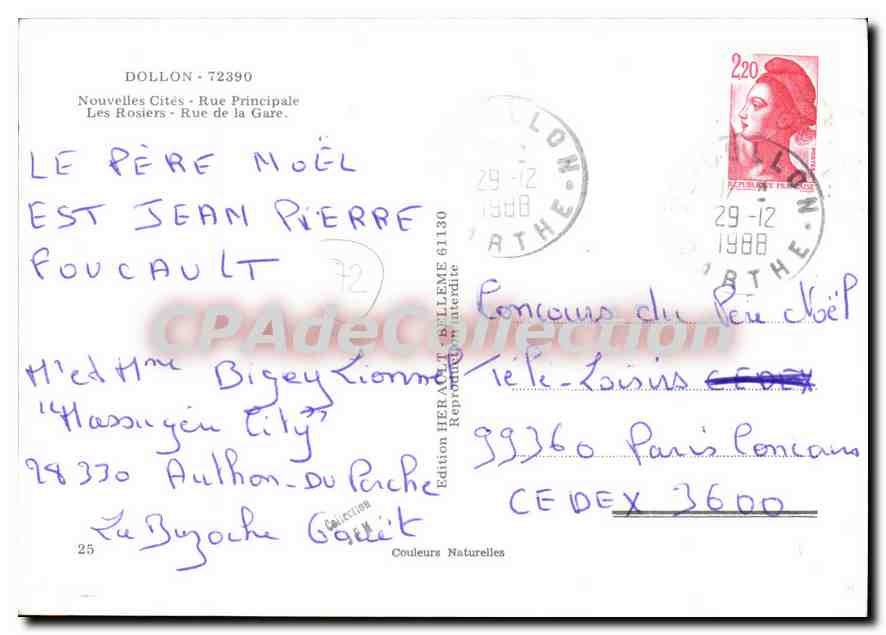 DOLLON - 72390
Nouvelles Cités - Rue Principale
Les Rosiers - Rue de la Gare.
LE PÈRE NOËL
EST JEAN PIERRE
FOUCAULT
72
Mr et Mme Bigey Lionnel
"Massuyeu City"
28330 Authon-Du Perche
La Bazoche Gouët
25
Couleurs Naturelles
Edition HERAULT - BELLEME 61130
Reproduction interdite
2,20
REPUBLIQUE FRANÇAISE
POSTES
29-12
1988
29-12
1988
Concours du Père Noël
Télé-Loisirs CEDEX
99360 Paris Concours
CEDEX 3600
CPAdeCollection
Collection